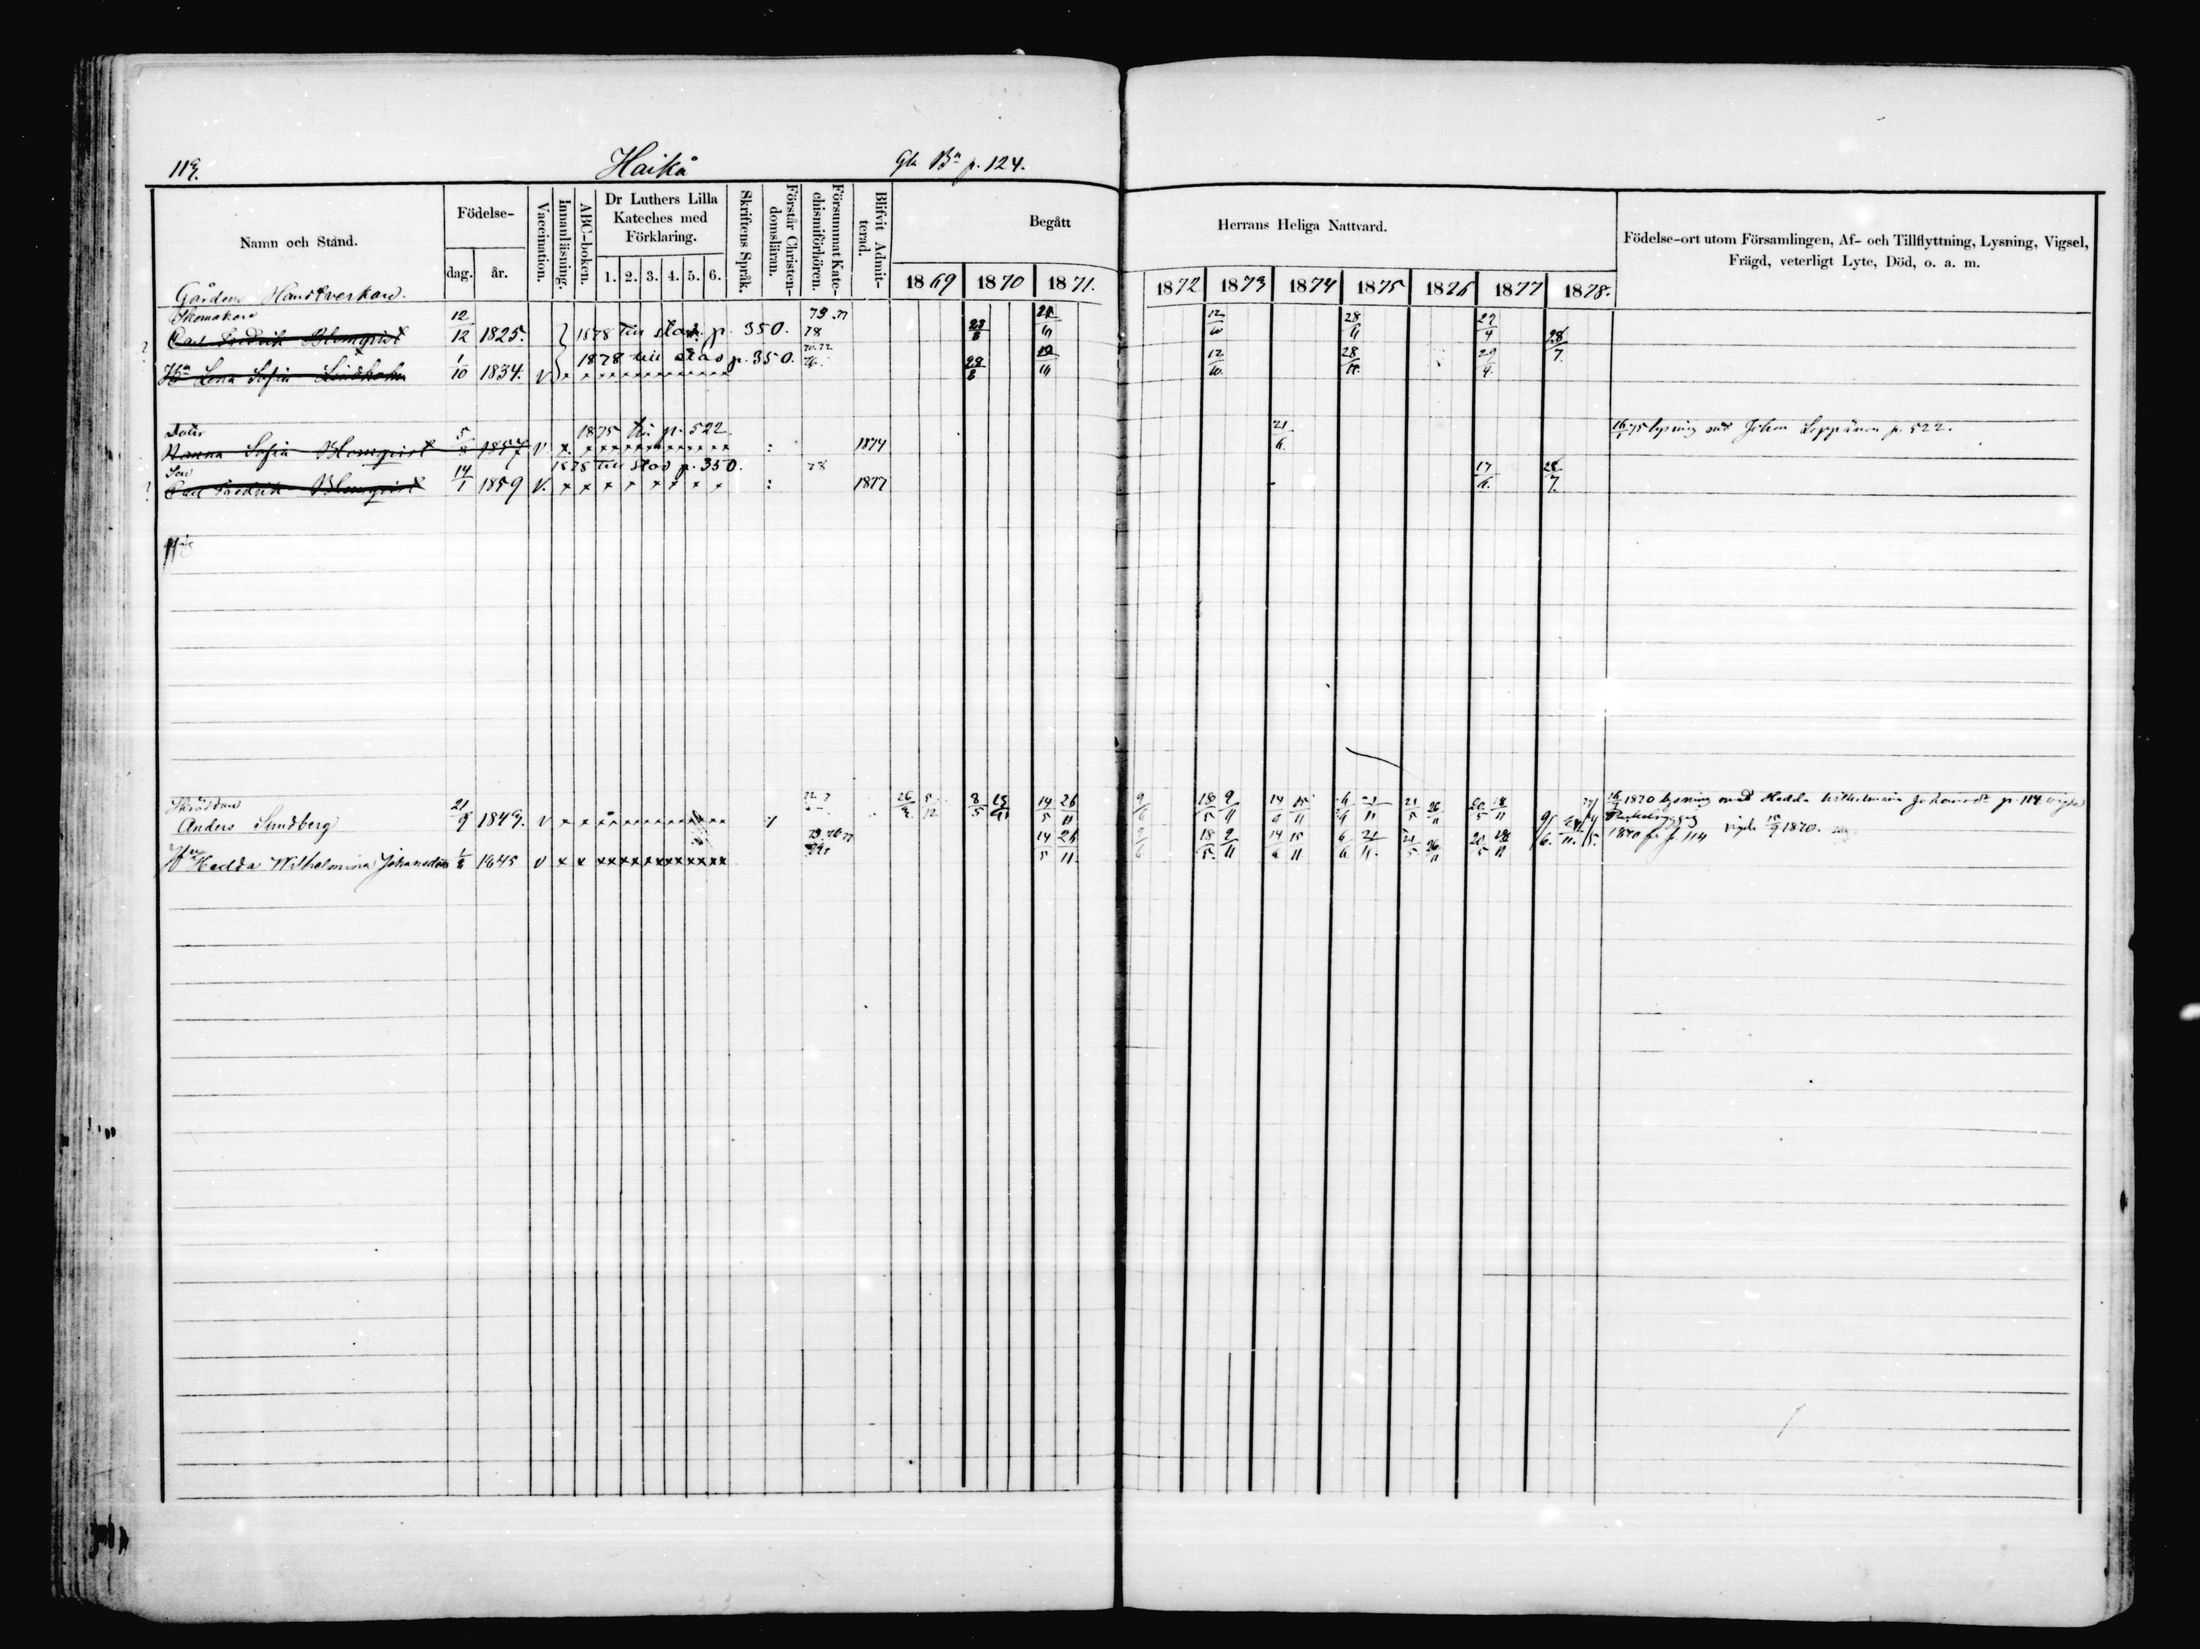 119. Haikå Gla Bn p. 124.
Namn och Stånd. Födelse- dag. år. Vaccination. Innanläsning. ABC-boken. Dr Luthers Lilla Kateches med Förklaring. 1. 2. 3. 4. 5. 6. Skriftens Språk. Förstår Christendomsläran. Försummat Katechismiförhören. Blifvit Admitterad. Begått Herrans Heliga Nattvard. Födelse-ort utom Församlingen, Af- och Tillflyttning, Lysning, Vigsel, Frägd, veterligt Lyte, Död, o. a. m.
1869 1870 1871. 1872 1873 1874 1875 1876 1877 1878.
Gårdens Handtverkare.
Skomakare 12/12 73.77
Carl Fredrik Blomqvist 1825. 1878 till stad. p. 350. 78 28/8 12/10 28/11 29/4 28/7
1878 till stad p. 350.
Hu Lena Sofia Lindholm 1/10 1834. v x x x x x x x x x x 28/8 12/10 28/11 29/4
Dotter 1875 till p. 522 21/6 16/1 75 lysning med Johan Leppänen p. 522.
Hanna Sofia Blomqvist 1857 V x x x x x x x x : 1874
Son 1878 till stad p. 350. 78 17/6 28/7
Carl Fredrik Blomqvist 14/1 1859 V. x x x x x x x x : 1877
Skräddare 21/9 26/9 8/5 14/5 26/11 18/5 9/11 14/6 15/11 21/5 26/11 20/5 18/11 1870 lysning med Hedda Wilhelmina Johansd. p. 114.
Anders Sundberg 1849. v x x x x x x x x x
14/5 26/11 18/5 9/11 14/6 15/11 6/6 21/11 21/5 26/11 20/5 18/11 1870 fr p. 114 vigde 18/9 1870.
Hu Hedda Wilhelmina Johansdr 1/8 1845 v x x x x x x x x x x